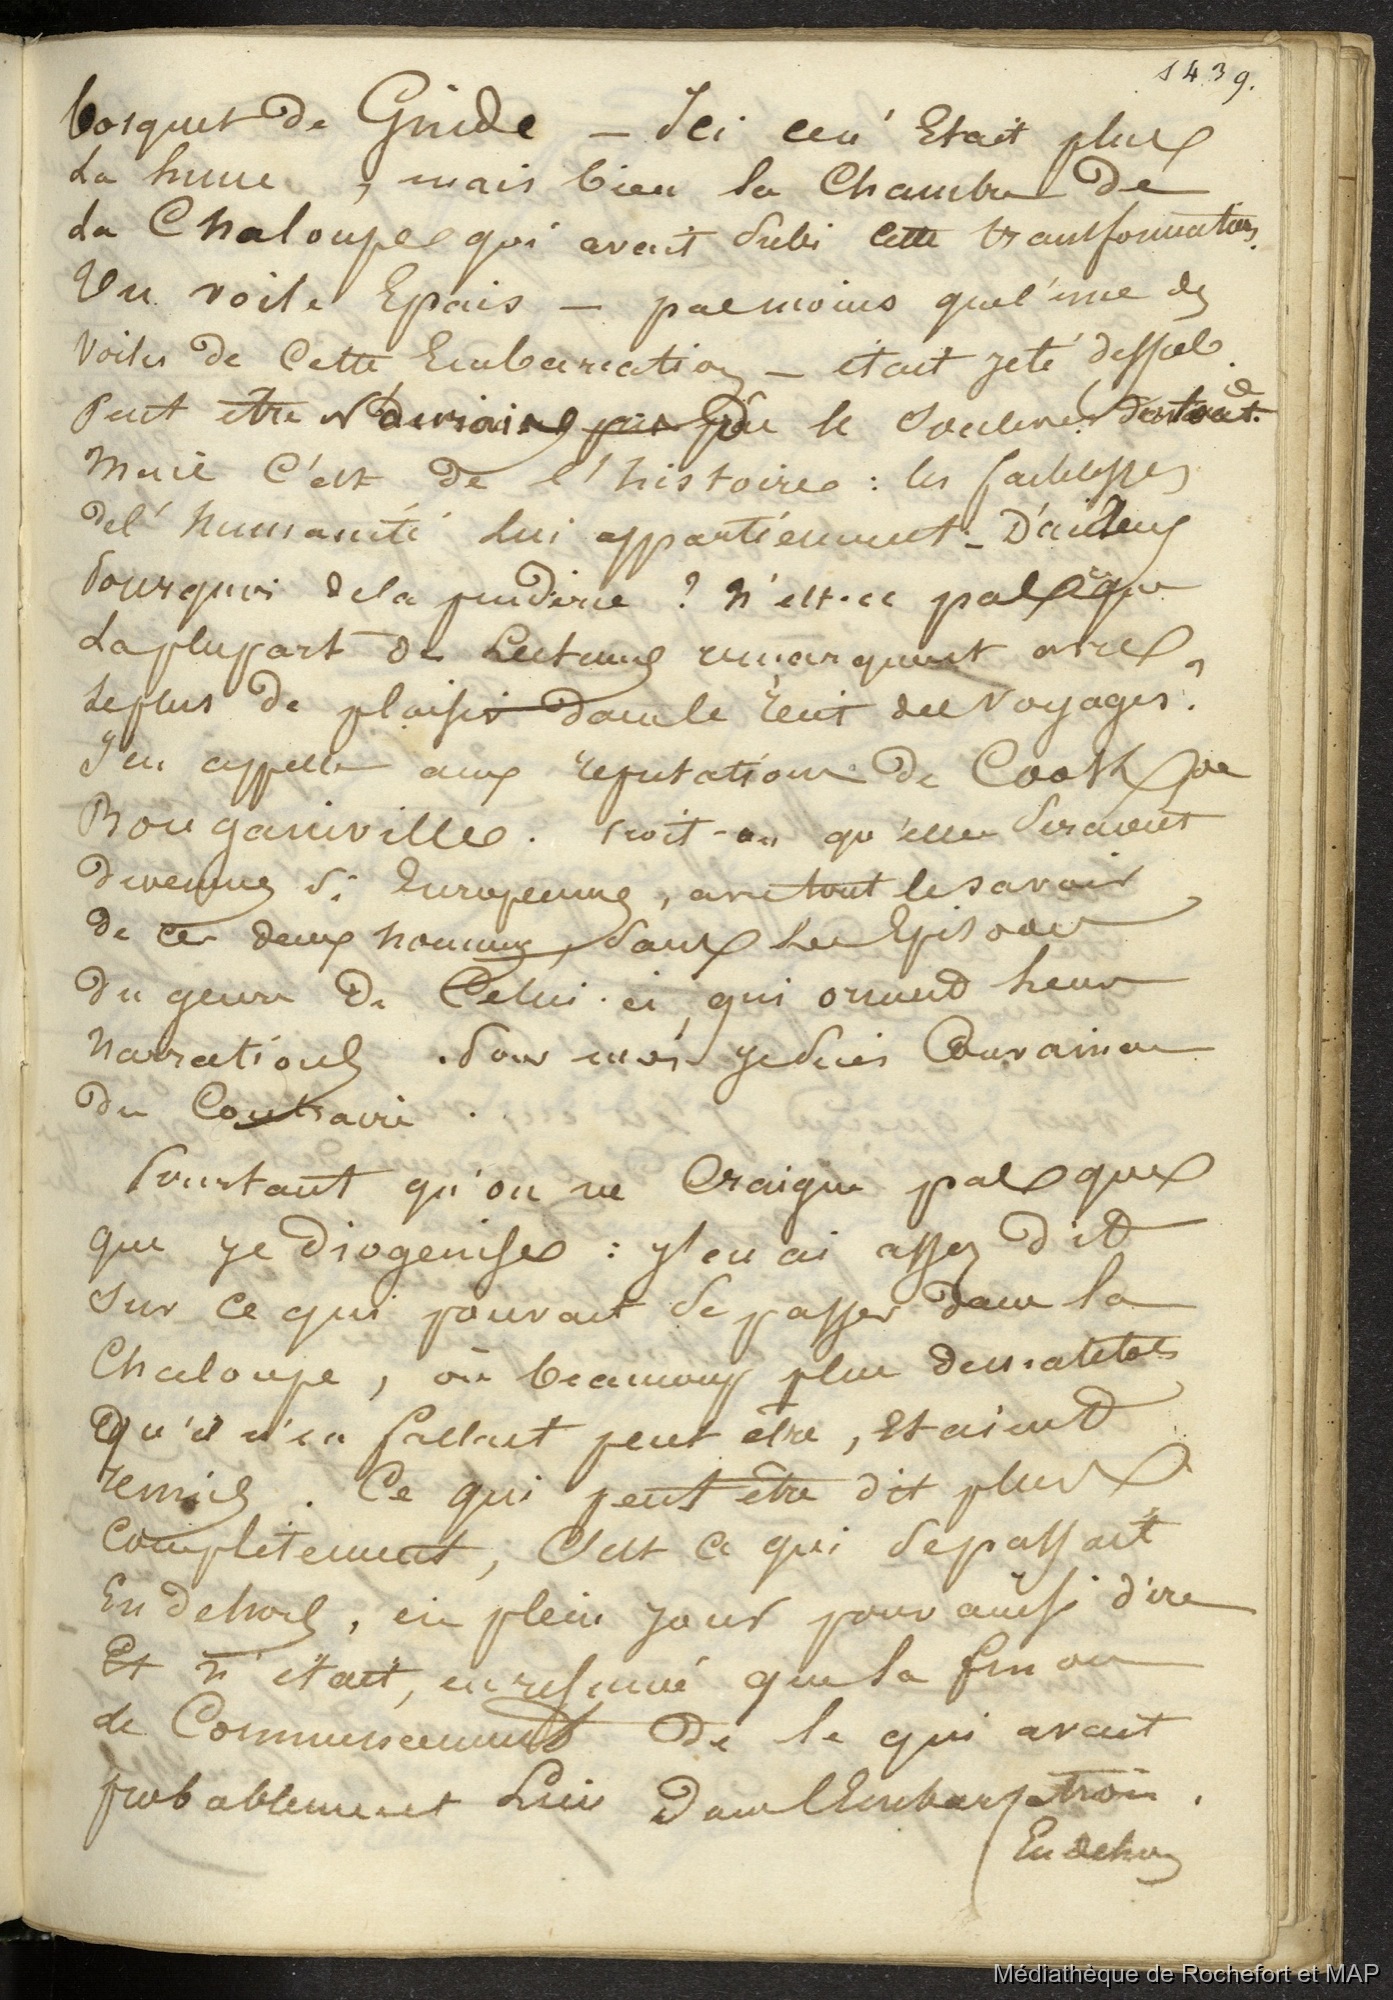 1439.
bosquet de Gnide — Ici ce n'Etait plus
La hune, mais bien la Chambre de
La Chaloupe qui avait subi cette transformation.
Un voile Epais — pas moins que l'une des
Voiles de Cette Embarcation — était jeté dessus.
Peut être N'aurais je pas dû le soulever
Mais C'est de l'histoire : les faiblesses
de l'humanité lui appartiennent — D'ailleurs
Pourquoi de la pruderie ? N'est-ce pas ce que
La plupart des Lecteurs remarquent avec
Le plus de plaisir dans le récit des Voyages ?
J'en appelle aux réputations de Cook
Bougainville. Croit-on qu'elles seraient
devenues si Européennes, avec tout le savoir
de ces deux hommes, sans les Episodes
du genre de Celui-ci, qui ornent leurs
Narrations. Pour moi je suis Convaincu
du Contraire.
Pourtant qu'on ne Craigne pas que
que je diogenise : j'en ai assez dit
Sur ce qui pouvait se passer dans la
Chaloupe, où beaucoup plus de matelots
Qu'il n'en fallait peut être, Etaient
remisés. Ce qui peut être dit plus
Complètement, C'est ce qui se passait
En dehors, en plein jour pour ainsi dire
Et n'était, en résumé que la fin ou
le Commencement de ce qui avait
probablement Lieu dans l'Embarcation.
En dehors